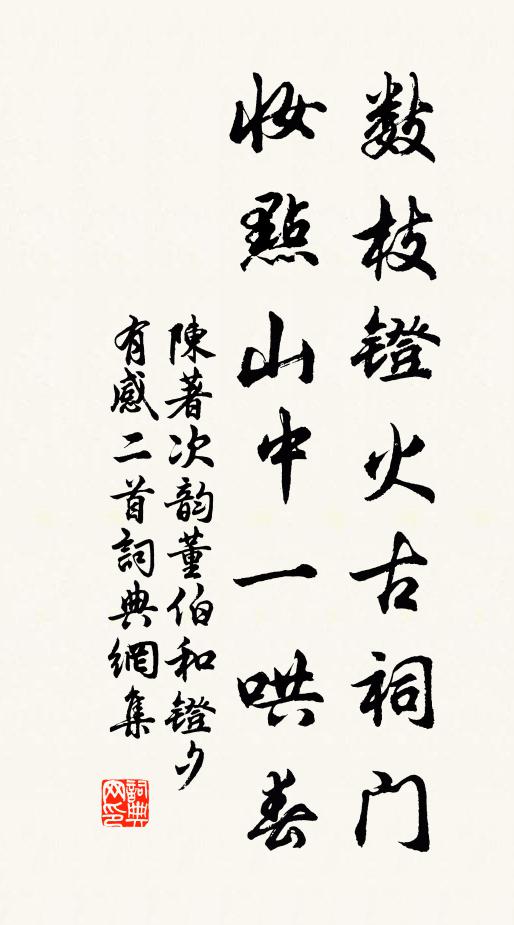 数枝镫火古祠门
妝點山中一哄春
陳著次韵董伯和镫夕
有感二首詞典網集
詞典网印